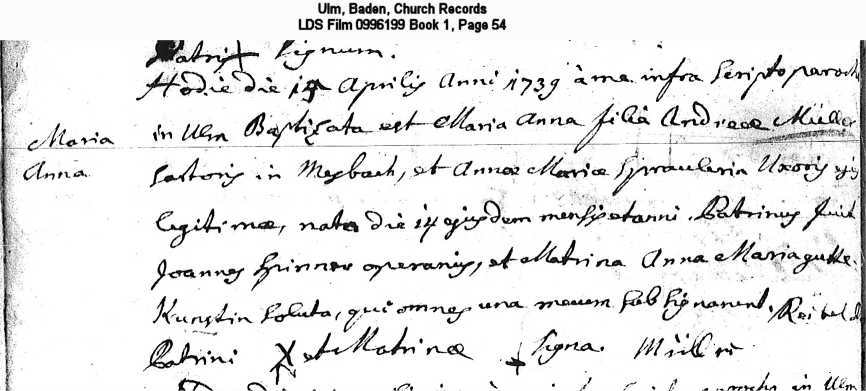 Ulm, Baden, Church Records
LDS Film 0996199 Book 1, Page 54
Matris Signum.
Hodie die Aprilis Anni 1739 à me infra Scripto paroch
Maria Anna
in Ulm Baptizata est Maria Anna filia Andreae Müller
Sartoris in Mesbach, et Annae Mariae Spraulerin Uxoris ejus
legitimae, nata die 14 ejusdem mensis et anni. Patrinus fuit
Joannes Spinner operarius, et Matrina Anna Maria gutte
Kunstin Soluta, qui omnes una mecum Subsignarunt.
Patrini X et Matrinae + Signa. Mülleri
in Ulm